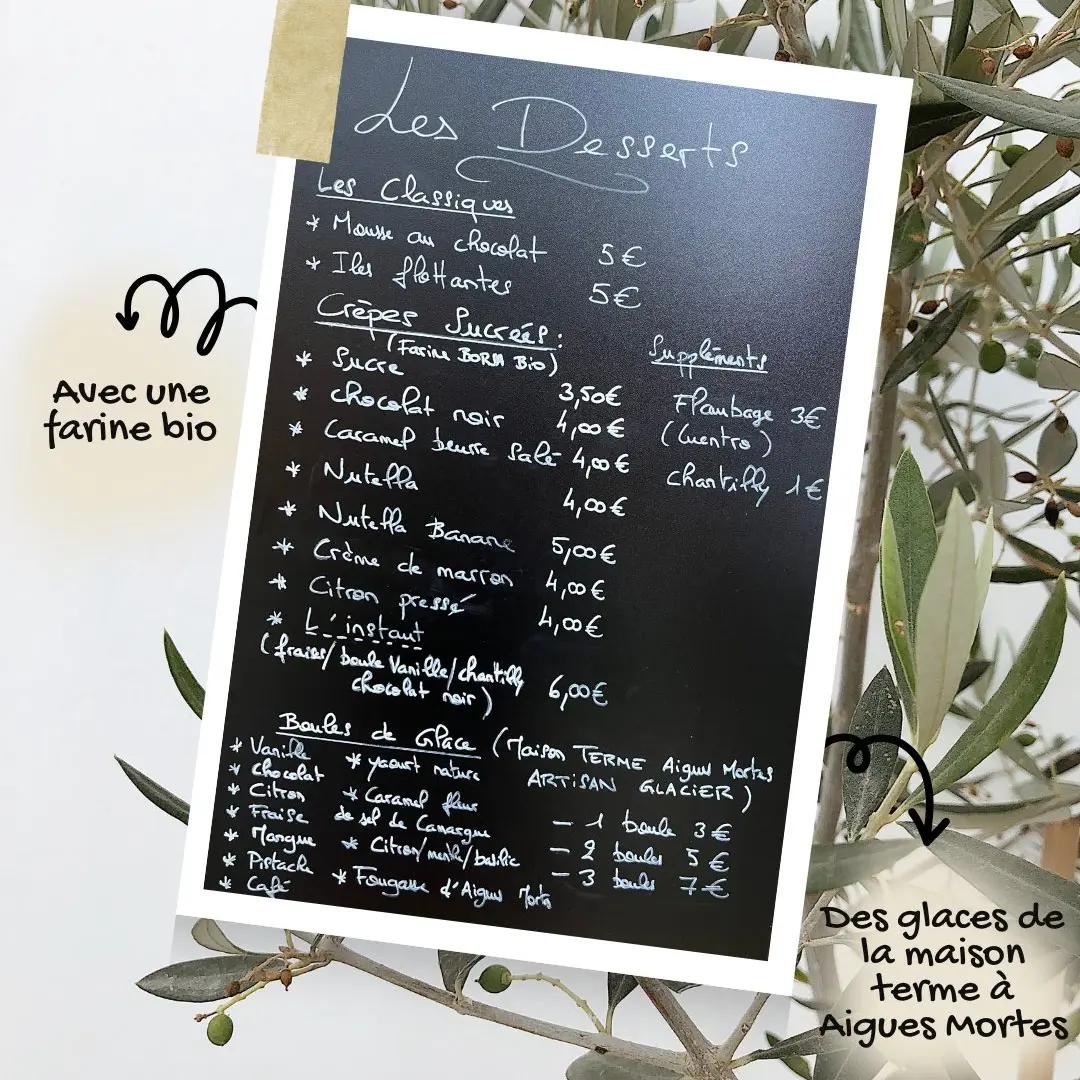 Les Desserts
Les Classiques
* Mousse au chocolat 5€
* Iles flottantes 5€
Crêpes Sucreés :
(Farine BORSA Bio)
* Sucre 3,50€
* chocolat noir 4,00€
* Caramel beurre Salé 4,00€
* Nutella 4,00€
* Nutella Banane 5,00€
* Crème de marron 4,00€
* Citron pressé 4,00€
* L'instant
(fraises/boule Vanille/chantilly
chocolat noir) 6,00€
Suppléments
Flambage 3€
(Cuentro)
chantilly 1€
Boules de Glace (Maison TERME Aigues Mortes
ARTISAN GLACIER)
* Vanille
* Chocolat
* Citron
* Fraise
* Mangue
* Pistache
* Café
* yaourt nature
* Caramel fleur
de sel de Camargue
* Citron/menthe/basilic
* Fougasse d'Aigues Mortes
- 1 boule 3€
- 2 boules 5€
- 3 boules 7€
Avec une
farine bio
Des glaces de
la maison
terme à
Aigues Mortes